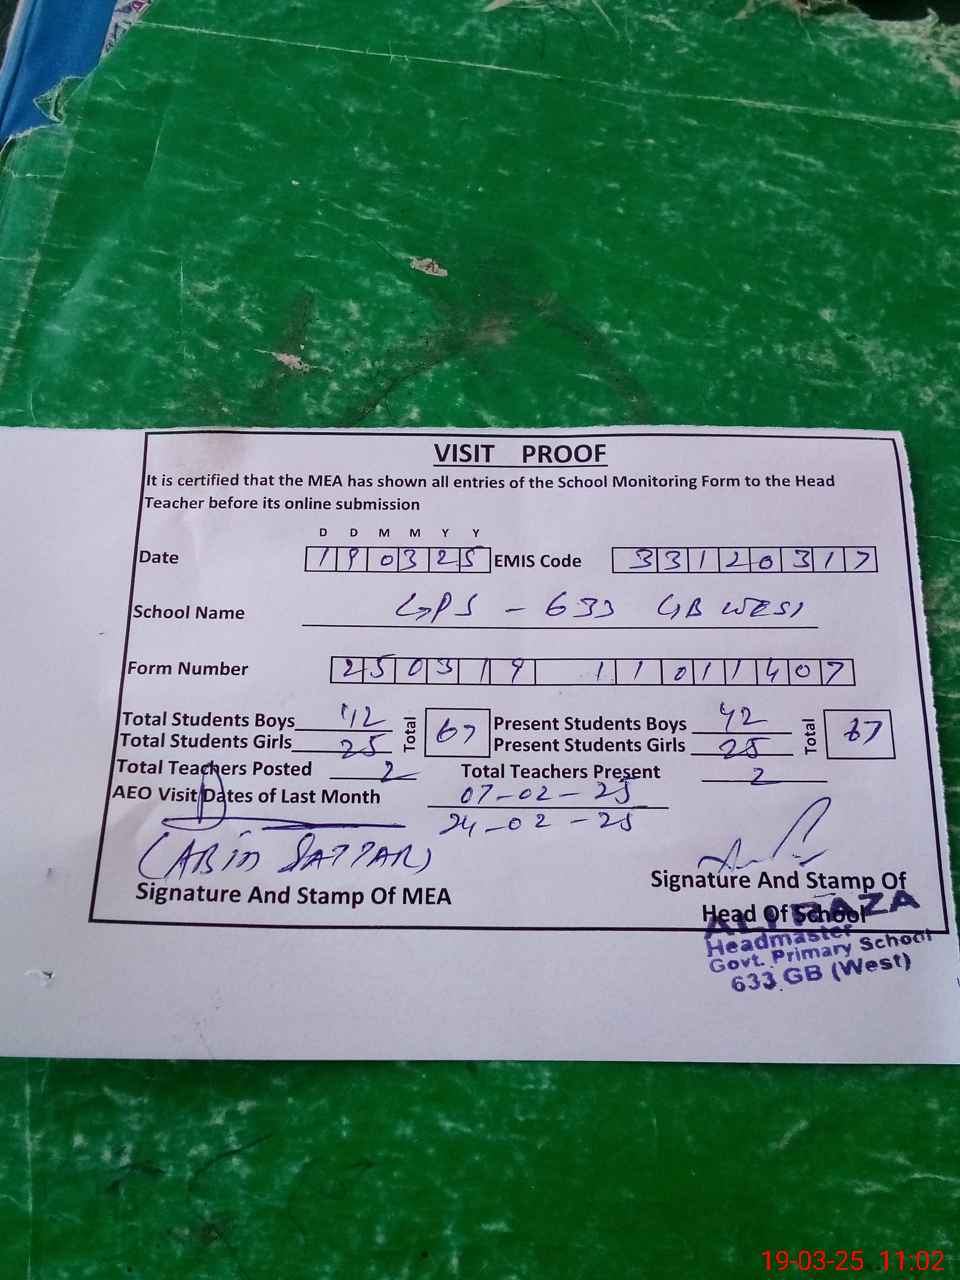 VISIT PROOF
It is certified that the MEA has shown all entries of the School Monitoring Form to the Head
Teacher before its online submission
D D M M Y Y
Date 190325 EMIS Code 33120317
School Name GPS - 633 GB WEST
Form Number 250319 11011407
Total Students Boys 42 Total 67 Present Students Boys 42 Total 67
Total Students Girls 25 Present Students Girls 25
Total Teachers Posted 2 Total Teachers Present 2
AEO Visit Dates of Last Month 07-02-25
24-02-25
(ABID SATTAR)
Signature And Stamp Of MEA
Signature And Stamp Of
Head Of School
ALI RAZA
Headmaster
Govt. Primary School
633 GB (West)
19-03-25 11:02